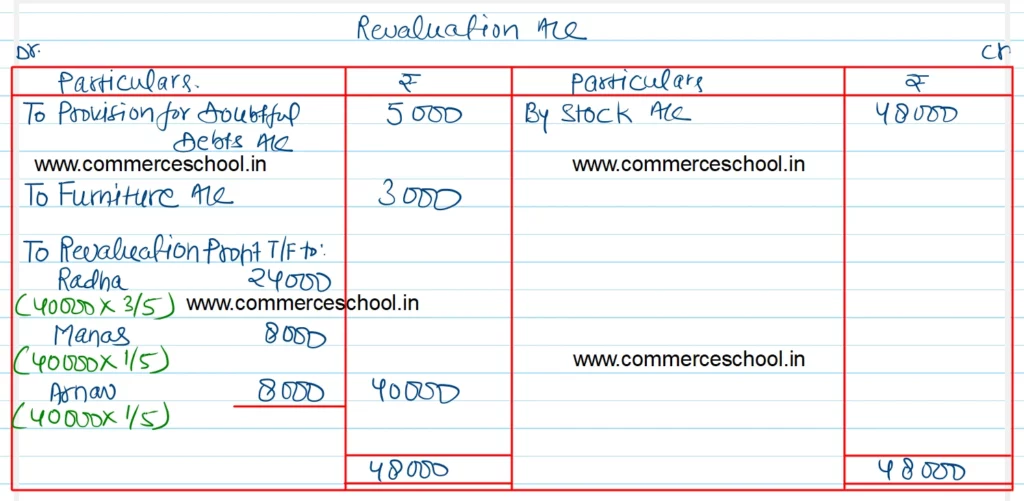 Revaluation A/c
Dr. Cr
Particulars. ₹ Particulars ₹
To Provision for Doubtful 5000 By Stock A/c 48000
Debts A/c
www.commerceschool.in www.commerceschool.in
To Furniture A/c 3000
To Revaluation Profit T/F to:
Radha 24000
(40000 x 3/5) www.commerceschool.in
Manas 8000
(40000 x 1/5) www.commerceschool.in
Arnav 8000 40000
(40000 x 1/5)
48000 48000